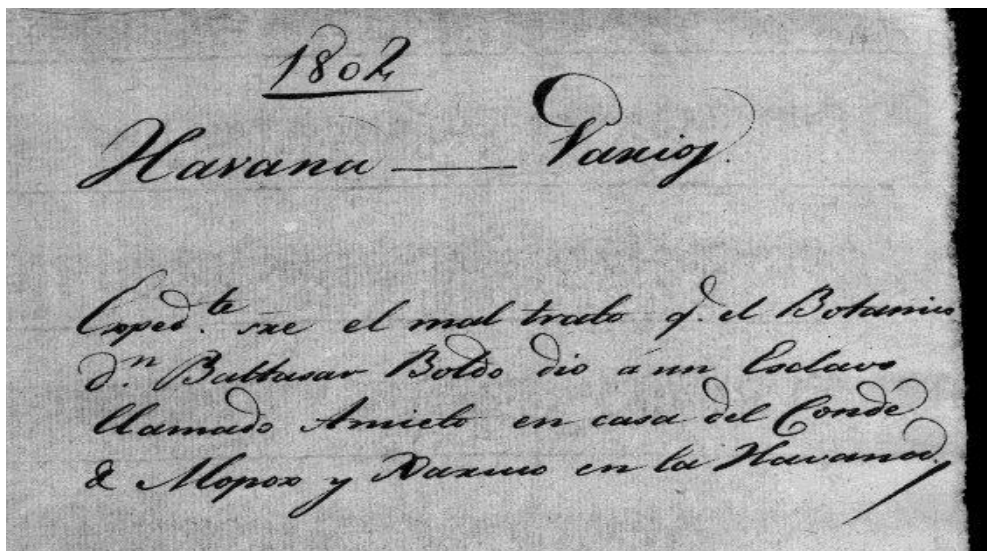 1802
Havana — Varios.
Exped.te sre el mal trato q. el Botanico
d.n Baltasar Boldo dio á un Esclavo
llamado Aniceto en casa del Conde
de Mopox y Jaruco en la Havana.